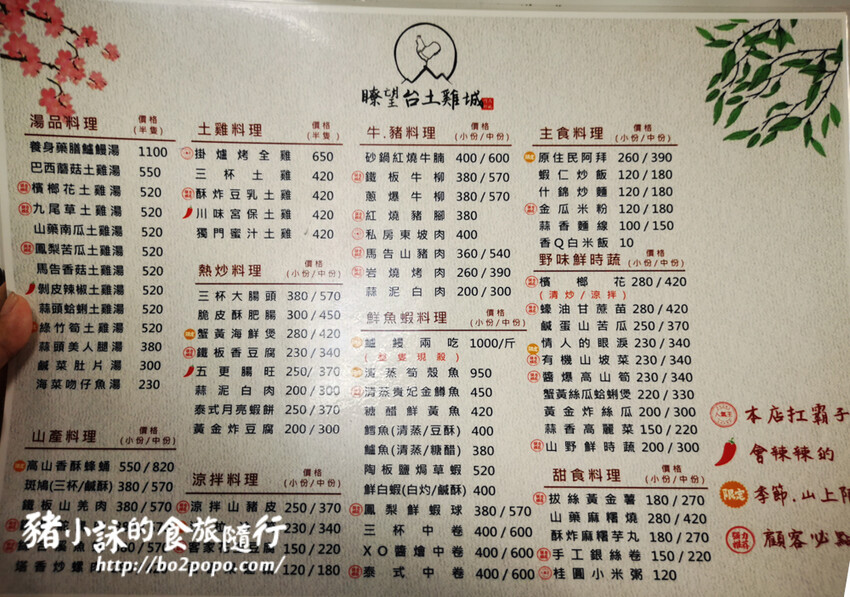 瞭望台土雞城
湯品料理 價格(半隻)
養身藥膳鱸鰻湯 1100
巴西蘑菇土雞湯 550
檳榔花土雞湯 520
九尾草土雞湯 520
山藥南瓜土雞湯 520
鳳梨苦瓜土雞湯 520
馬告香菇土雞湯 520
剝皮辣椒土雞湯 520
蒜頭蛤蜊土雞湯 520
綠竹筍土雞湯 520
蒜頭美人腿湯 380
鹹菜肚片湯 300
海菜吻仔魚湯 230
山產料理 價格(小份/中份)
高山香酥蜂蛹 550/820
斑鳩(三杯/鹹酥) 380/570
鐵板山羌肉 380/570
380/570
塔香炒螺肉
土雞料理 價格(半隻)
掛爐烤全雞 650
三杯土雞 420
酥炸豆乳土雞 420
川味宮保土雞 420
獨門蜜汁土雞 420
熱炒料理 價格(小份/中份)
三杯大腸頭 380/570
脆皮酥肥腸 300/450
蟹黃海鮮煲 280/420
鐵板香豆腐 230/340
五更腸旺 250/370
蒜泥白肉 200/300
泰式月亮蝦餅 250/370
黃金炸豆腐 200/300
涼拌料理 價格(小份/中份)
涼拌山豬皮 250/370
230/340
客家 腐 150/220
120/180
牛.豬料理 價格(小份/中份)
砂鍋紅燒牛腩 400/600
鐵板牛柳 380/570
蔥爆牛柳 380/570
紅燒豬腳 380
私房東坡肉 400
馬告山豬肉 360/540
岩燒烤肉 260/390
蒜泥白肉 200/300
鮮魚蝦料理 價格(小份/中份)
鱸鰻兩吃 1000/斤
(整隻現殺)
清蒸筍殼魚 950
清蒸貴妃金鱒魚 450
糖醋鮮黃魚 420
鱈魚(清蒸/豆酥) 400
鱸魚(清蒸/糖醋) 380
陶板鹽焗草蝦 520
鮮白蝦(白灼/鹹酥) 400
鳳梨鮮蝦球 380/570
三杯中卷 400/600
XO醬燴中卷 400/600
泰式中卷 400/600
主食料理 價格(小份/中份)
原住民阿拜 260/390
蝦仁炒飯 120/180
什錦炒麵 120/180
金瓜米粉 120/180
蒜香麵線 100/150
香Q白米飯 10
野味鮮時蔬 價格(小份/中份)
檳榔花 280/420
(清炒/涼拌)
蠔油甘蔗苗 280/420
鹹蛋山苦瓜 250/370
情人的眼淚 230/340
有機山坡菜 230/340
醬爆高山筍 230/340
蟹黃絲瓜蛤蜊煲 220/330
黃金炸絲瓜 200/300
蒜香高麗菜 150/220
山野鮮時蔬 200/300
甜食料理 價格(小份/中份)
拔絲黃金薯 180/270
山藥麻糬燒 280/420
酥炸麻糬芋丸 180/270
手工銀絲卷 150/220
桂圓小米粥 120
人氣王 本店扛霸子
會辣辣的
限定 季節.山上限
強力推薦 顧客必點
豬小詸的食旅隨行
http://bo2popo.com/